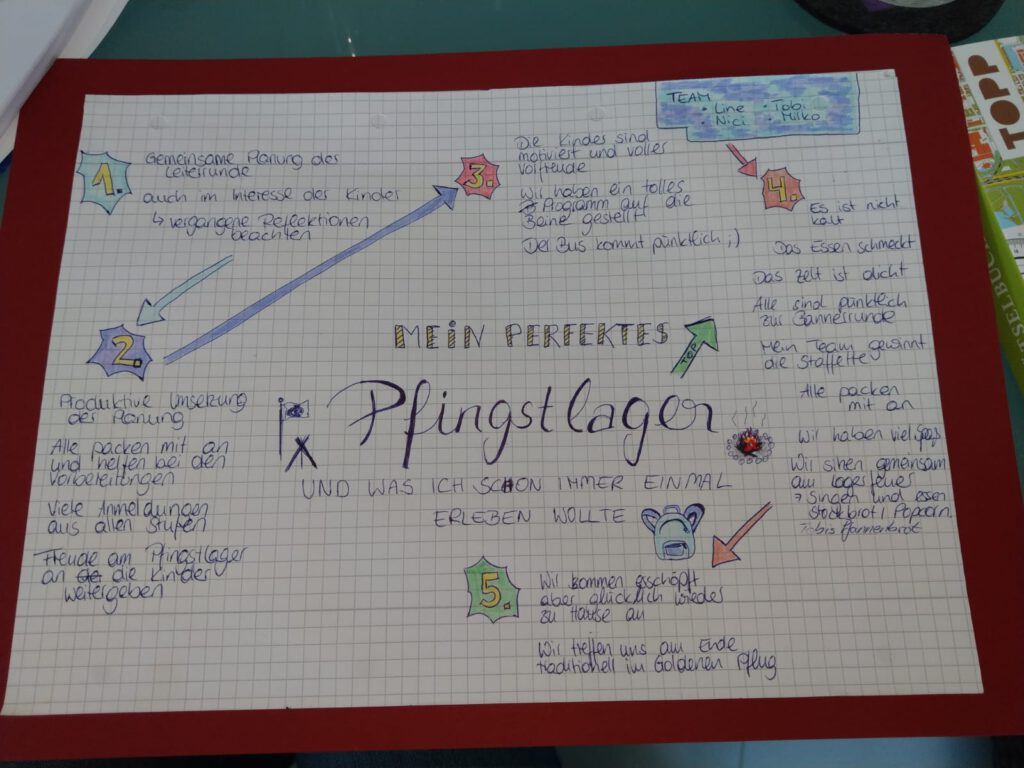 TEAM
• Line
• Tobi
• Nici
• Milko
1.
Gemeinsame Planung der
Leiterrunde
auch im Interesse der Kinder
↳ vergangene Reflektionen
beachten
2.
Produktive Umsetzung
der Planung
Alle packen mit an
und helfen bei den
Vorbereitungen
Viele Anmeldungen
aus allen Stufen
Freude am Pfingstlager
an die Kinder
weitergeben
3.
Die Kinder sind
motiviert und voller
Vorfreude
Wir haben ein tolles
Programm auf die
Beine gestellt
Der Bus kommt pünktlich ;)
4.
Es ist nicht
kalt
Das Essen schmeckt
Das Zelt ist dicht
Alle sind pünktlich
zur Bannerrunde
Mein Team gewinnt
die Staffette
Alle packen
mit an
Wir haben viel Spaß
Wir sitzen gemeinsam
am Lagerfeuer
→ Singen und essen
Stockbrot / Popcorn
bis
MEIN PERFEKTES
TOP
Pfingstlager
UND WAS ICH SCHON IMMER EINMAL
ERLEBEN WOLLTE
5.
Wir kommen erschöpft
aber glücklich wieder
zu Hause an
Wir treffen uns am Ende
traditionell im Goldenen Pflug
TOPP